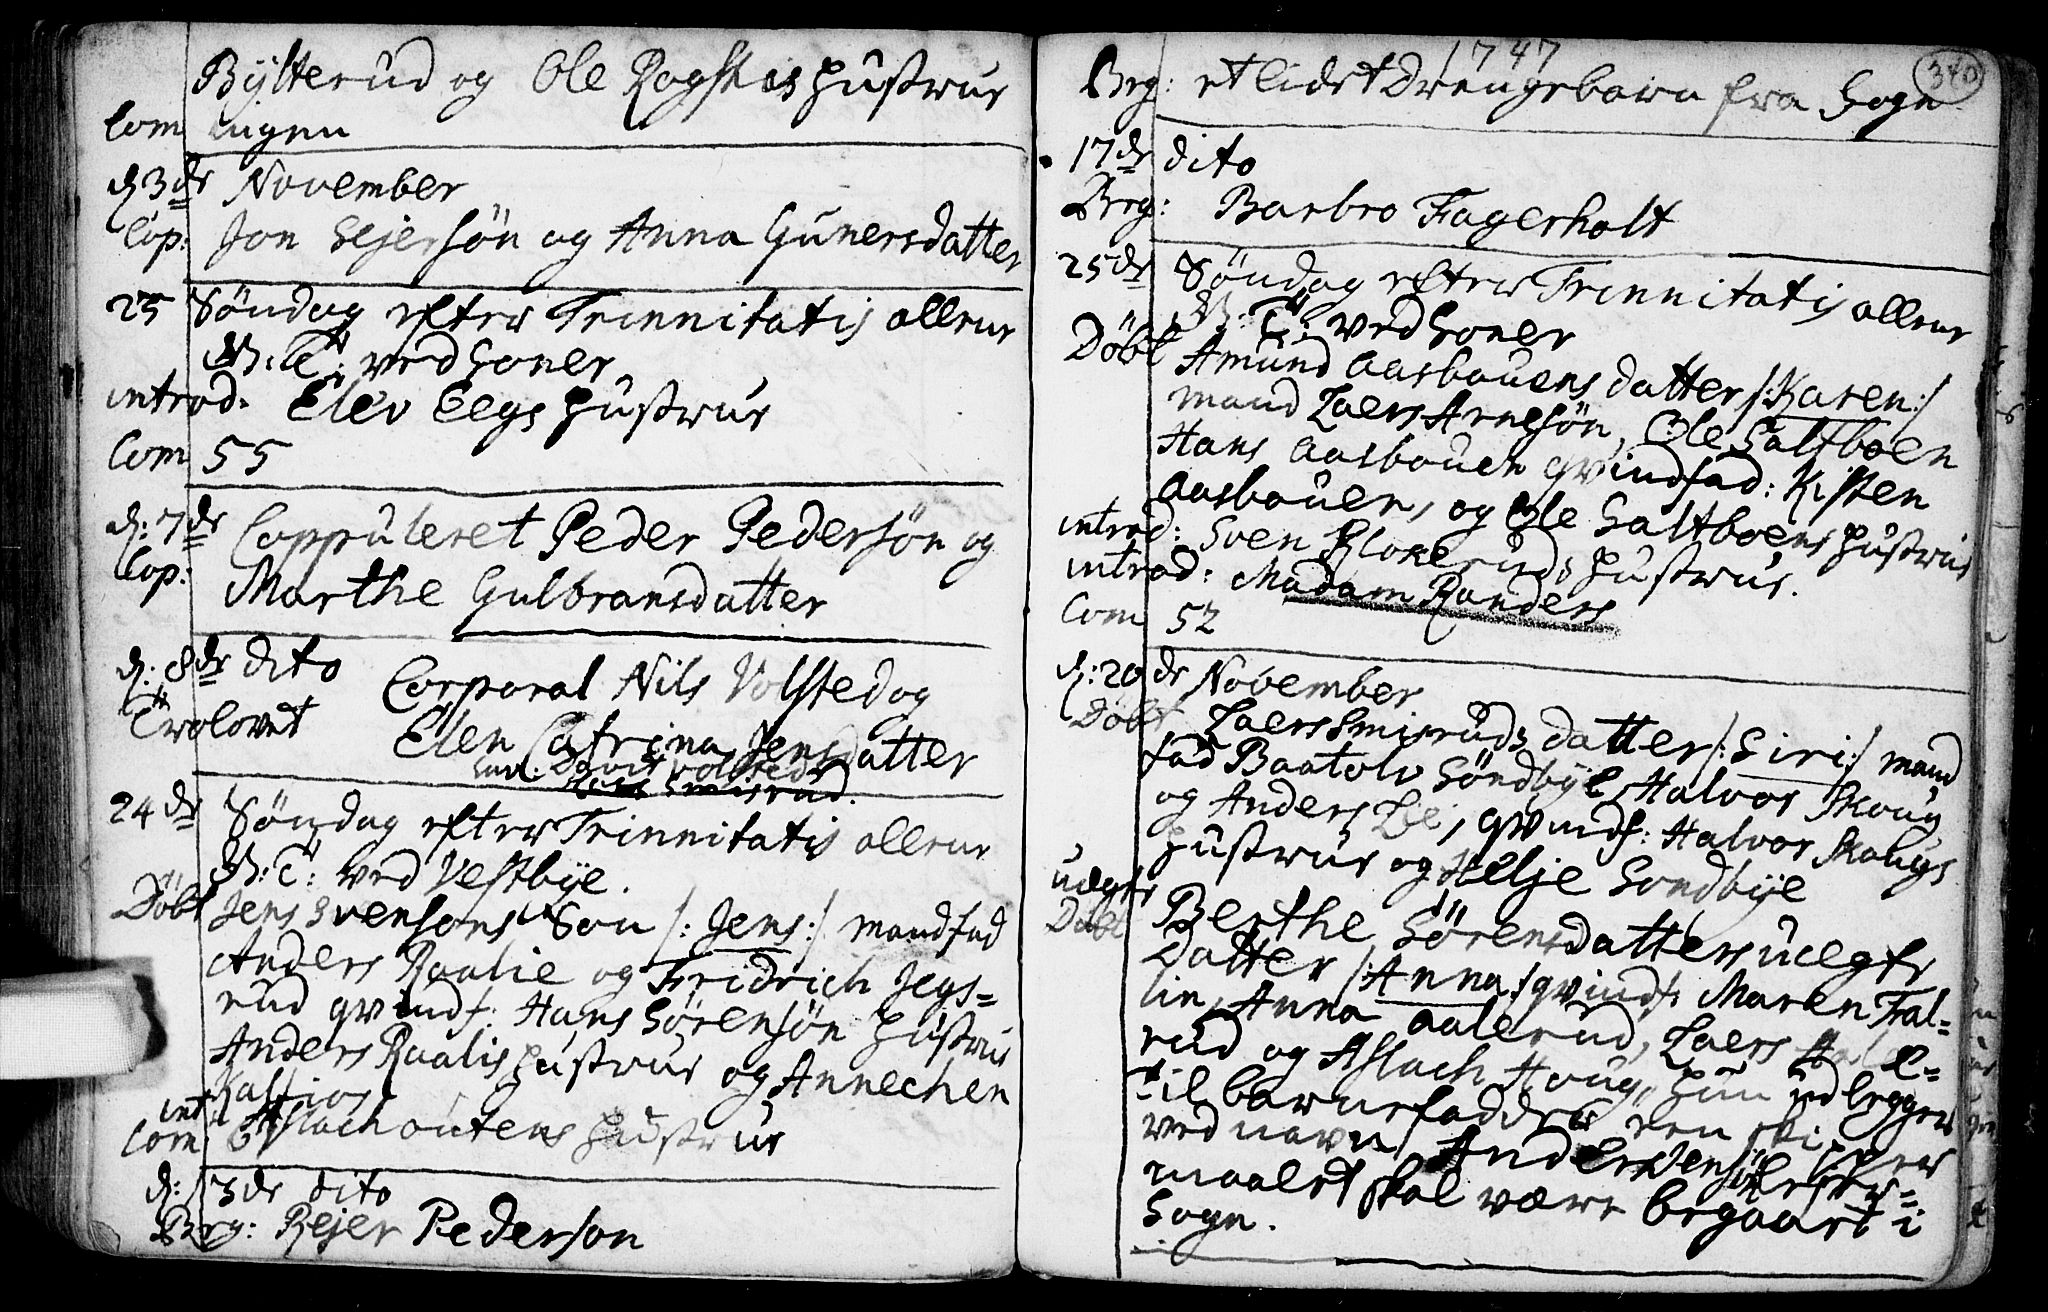 Bylterud og Ole Rogstas hustrue
Com ingen
d. 3de November
Cop: Jon Sejersøn og Anna Gunersdatter
25 Søndag efter Trinnitatis
ved Soner
introd. Elev Eegs hustrue
Com 55
d: 7de Coppuleret Peder Pedersøn og
Cop: Marthe Gulbransdatter
d: 8de dito Corporal Nils Volsted og
Trolovet Elen Catrina Jensdatter
24de Søndag efter Trinnitatis
ved Vestbye.
Døbt Jens Svensons Søn /: Jens :/ mandfad
Anders Raalie og Fridrich Jegs=
rud qvindf: Hans Sørensøn hustrue
Anders Raalis hustrue og Annechen
int
Com Aslach outens hustrue
d: 13de dito
Brg: Rejer Pederson
1747
340
Brg: et lidet Drengebarn fra Sogn
17de dito
Brg: Barbro Fagerholt
25de Søndag efter Trinnitatis
ved Soner
Døbt Amund Aasbouens datter /: Karen :/
mand Laers Arnesøn, Ole Saltboen
Hans Aasbouen qvindfad: Kisten
Aasbouen, og Ole Saltboens hustrue
introd: Sven hustrue.
introd: Madam Randers
Com 52
d: 20de November
Døbt Laers Smisruds datter /: Siri :/ mand
fad Baatolv Søndbye, Halvor Skoug
og Anders Lie, qvindf: Halvor Skougs
hustrue og Helje Sondbye
uægte
Døbt Berthe Sørensdatters uægte
Datter /: Anna :/ qvindf: Maren Fal=
lin, Anna Aalerud, Laers
rud og Aslach Houg, hun udlegger
til barnefadder een
ved navn Anders
maalet skal være begaaet i
Sogn.